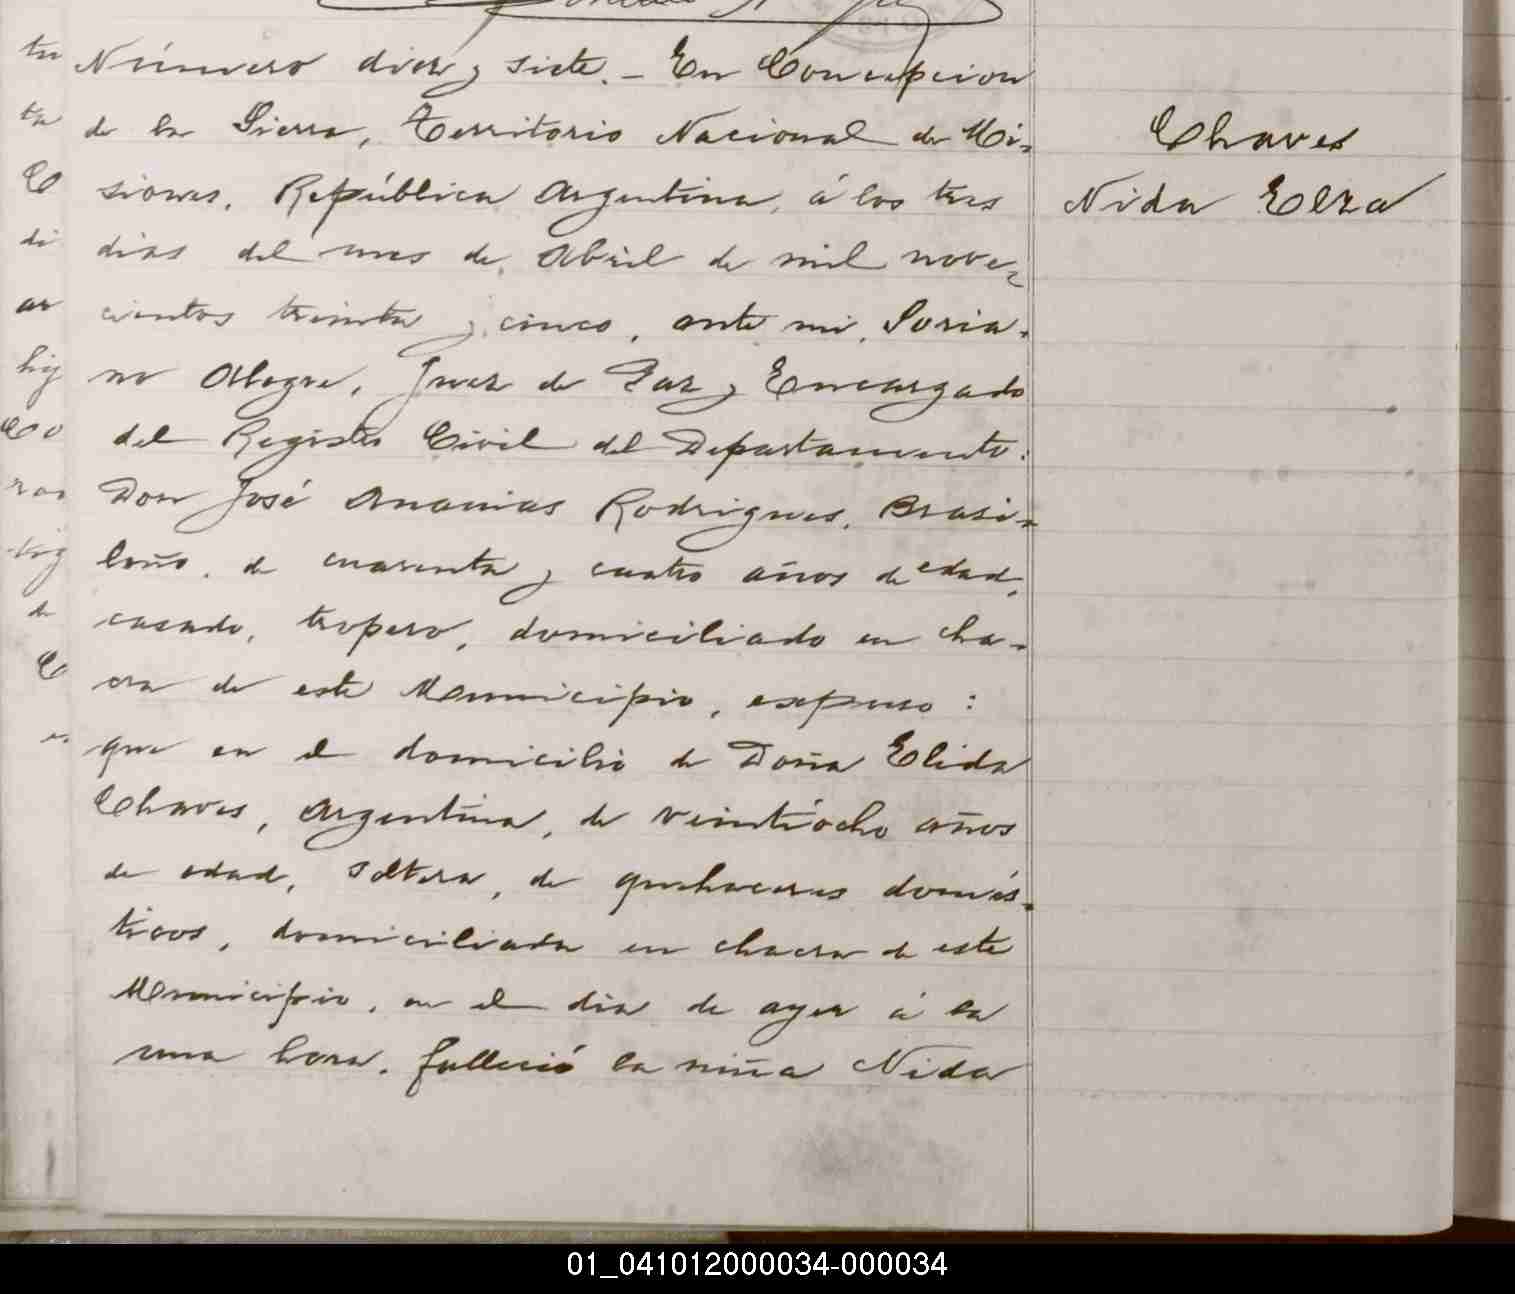 Número diez y siete. – En Concepcion
de la Sierra, Territorio Nacional de Mi-
siones, República Argentina, á los tres
dias del mes de Abril de mil nove-
cientos treinta y cinco, ante mi, Soria-
no Alegre, Juez de Paz y Encargado
del Registro Civil del Departamento:
Don José Ananias Rodrigues, Brasi-
leño, de cuarenta y cuatro años de edad,
casado, tropero, domiciliado en cha-
cra de este Municipio, expuso:
que en el domicilio de Doña Elida
Chaves, Argentina, de veintiocho años
de edad, soltera, de quehaceres domés-
ticos, domiciliada en chacra de este
Municipio, en el dia de ayer á la
una hora, falleció la niña Nida
Chaves
Nida Elza
01_041012000034-000034